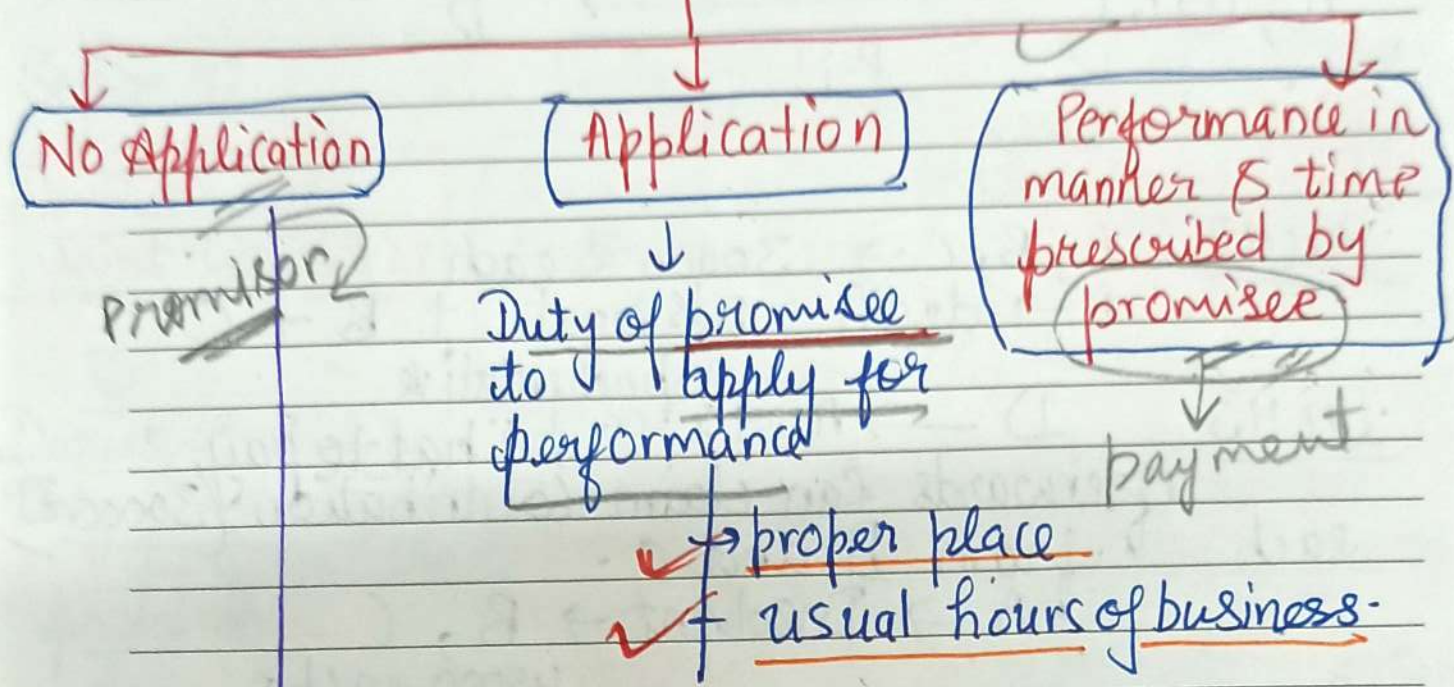 No Application
promisor
Application
Duty of promisee
to apply for
performance
proper place
usual hours of business.
Performance in
manner & time
prescribed by
promisee
payment